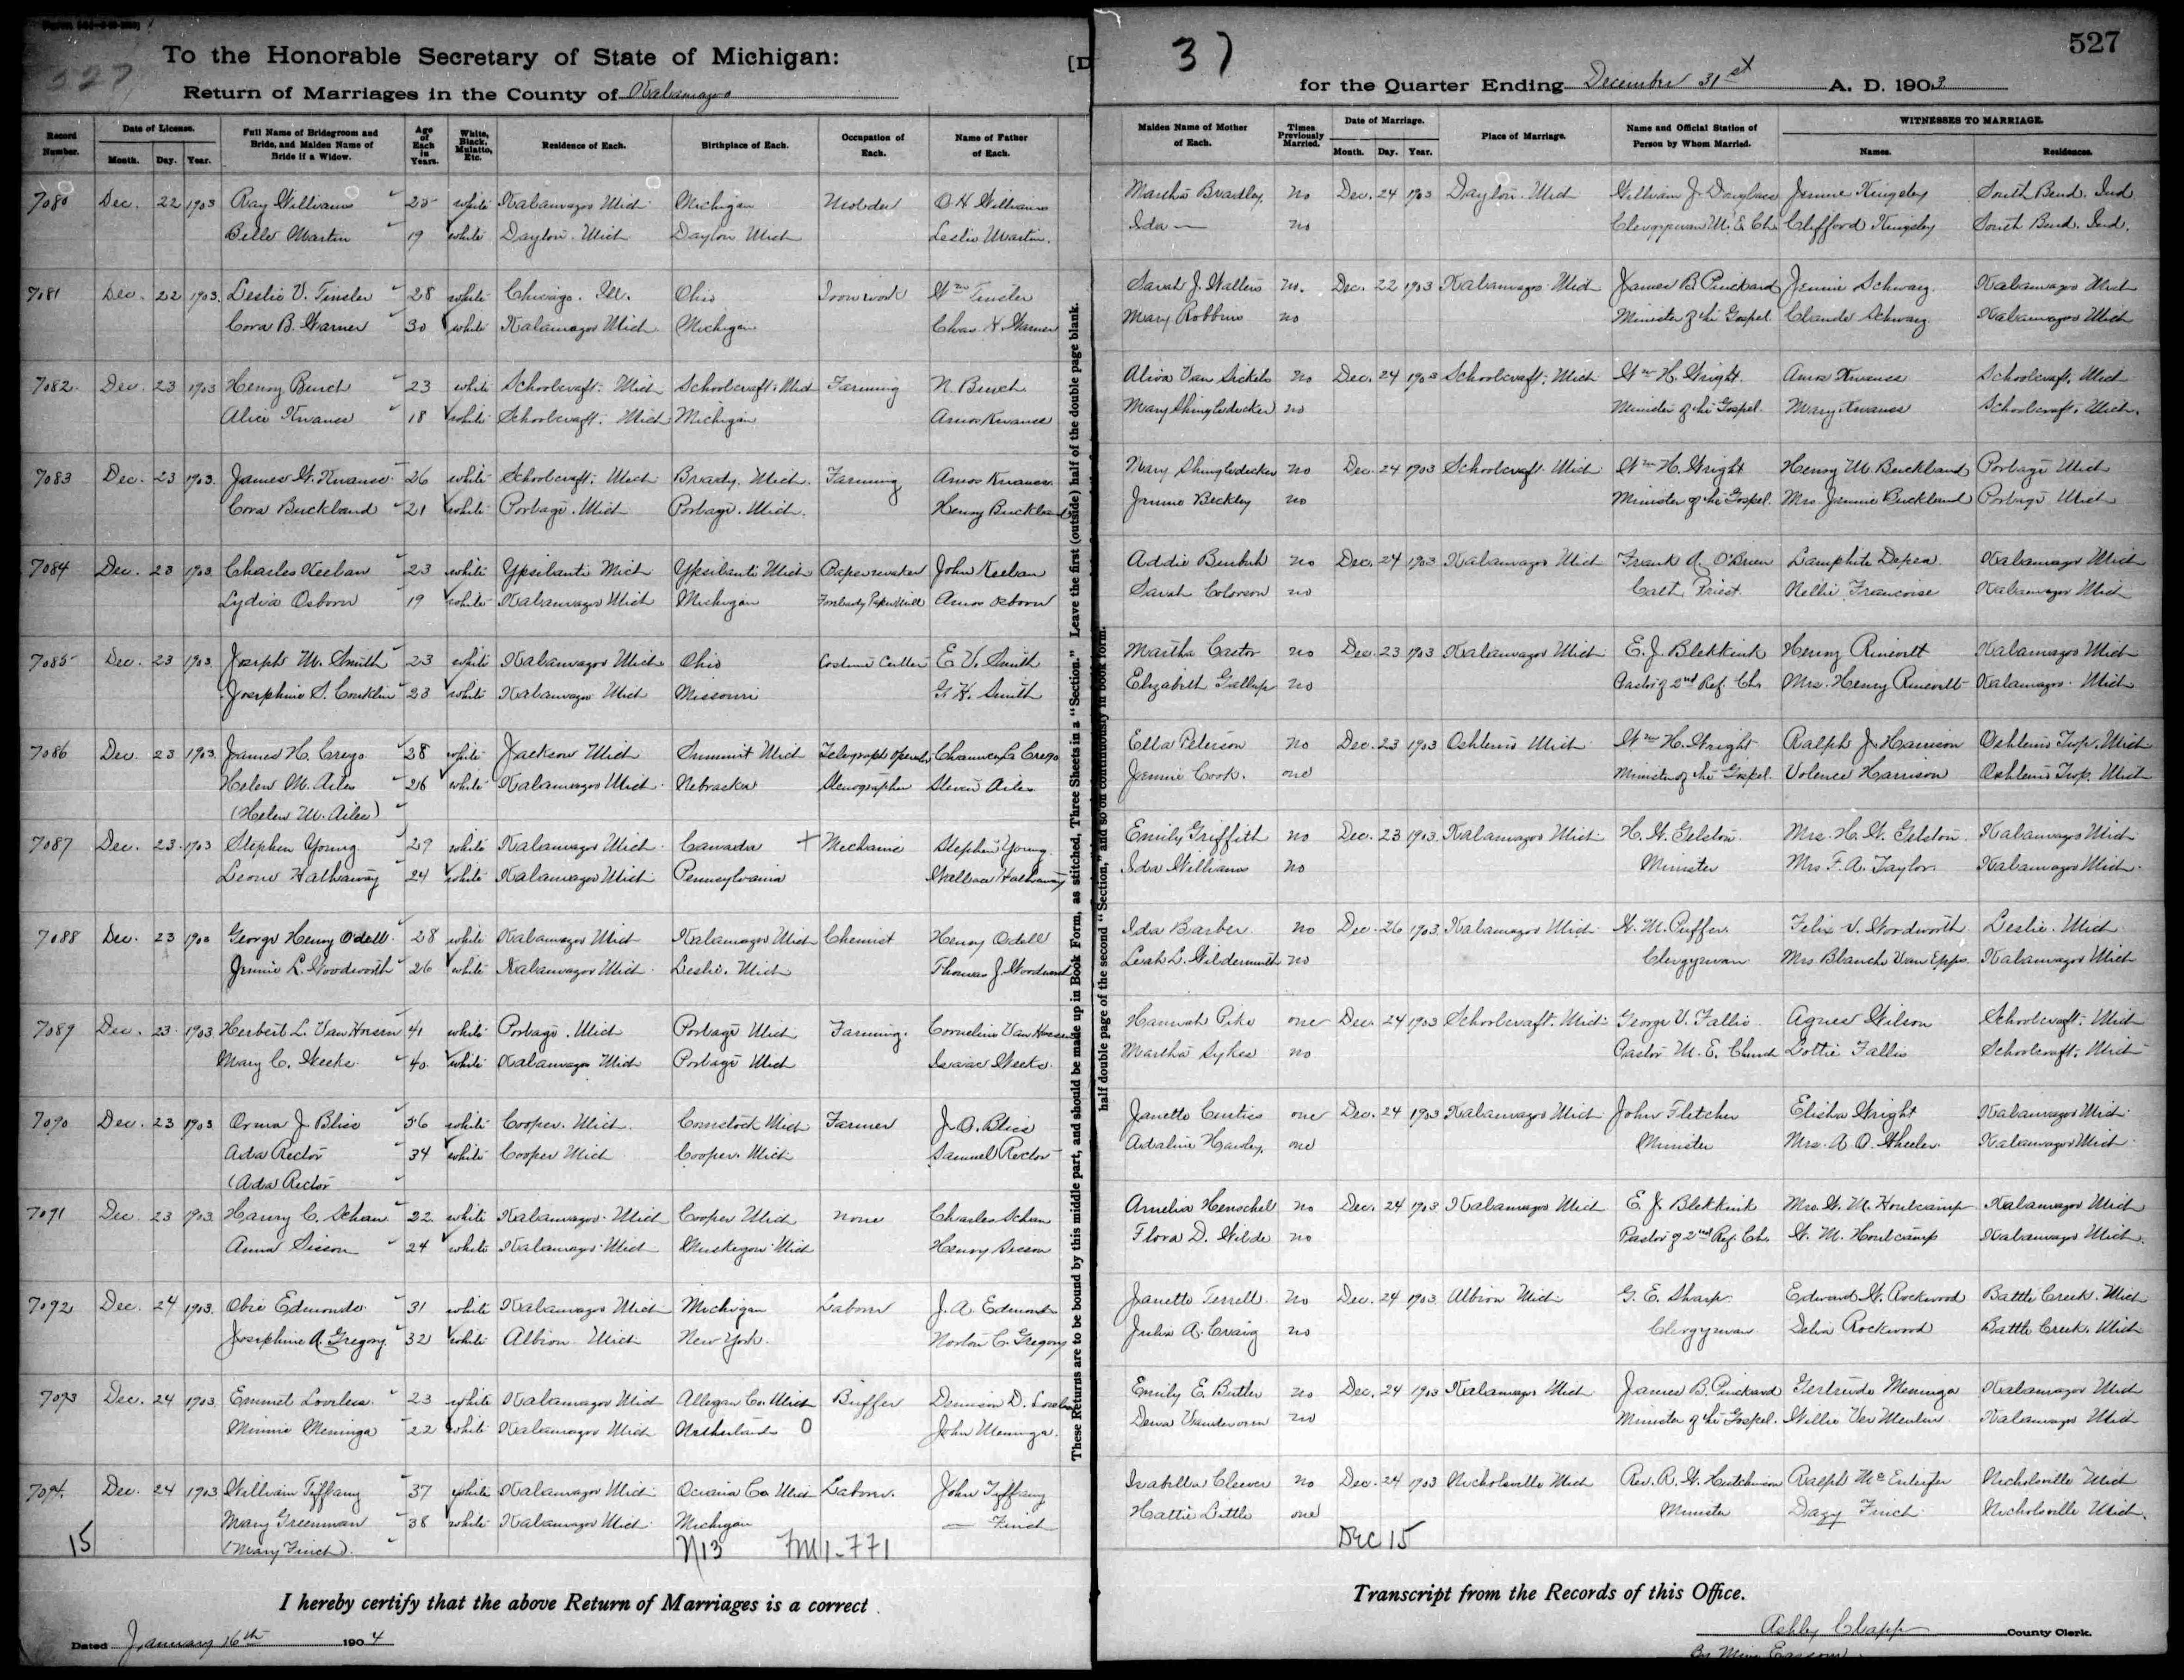 To the Honorable Secretary of State of Michigan:
Return of Marriages in the County of Kalamazoo
37
527
for the Quarter Ending December 31st A. D. 1903
Record Number. Date of License. Month. Day. Year. Full Name of Bridegroom and Bride, and Maiden Name of Bride if a Widow. Age of Each in Years. White, Black, Mulatto, Etc. Residence of Each. Birthplace of Each. Occupation of Each. Name of Father of Each. Maiden Name of Mother of Each. Times Previously Married. Date of Marriage. Month. Day. Year. Place of Marriage. Name and Official Station of Person by Whom Married. WITNESSES TO MARRIAGE. Names. Residences.
7080 Dec. 22 1903 Ray Williams 25 white Kalamazoo Mich Michigan Molder O H Williams Martha Bradley no Dec. 24 1903 Dayton Mich William J. Douglass Jennie Kingsley South Bend. Ind
Belle Martin 19 white Dayton Mich Dayton Mich Leslie Martin. Ida — no Clergyman M. E Ch. Clifford Kingsley South Bend. Ind.
7081 Dec. 22 1903. Leslie V. Tinsler 28 white Chicago. Ill. Ohio Iron work Wm Tinsler Sarah J. Walters no. Dec. 22 1903 Kalamazoo Mich James B Pinckard Jennie Schwarz Kalamazoo Mich
Cora B. Warner 30 white Kalamazoo Mich. Michigan Chas H Warner Mary Robbins no Minister of the Gospel Claude Schwarz Kalamazoo Mich
7082. Dec. 23 1903 Henry Bench 23 white Schoolcraft. Mich Schoolcraft. Mich Farming N. Bench Van Sickels no Dec. 24 1903 Schoolcraft, Mich Wm H. Wright. Amos Schoolcraft, Mich
Alice 18 white Schoolcraft. Mich Michigan Amos Mary Shingledecker no Minister of the Gospel Mary Schoolcraft, Mich.
7083 Dec. 23 1903. James W. 26 white Schoolcraft. Mich Brady, Mich. Farming Amos Mary Shingledecker no Dec. 24 1903 Schoolcraft Mich Wm H. Wright Henry M. Buckland Portage Mich
Cora Buckland 21 white Portage. Mich Portage. Mich. Henry Buckland Jennie Beckley no Minister of the Gospel. Mrs Jennie Buckland Portage Mich
7084 Dec. 23 1903. Charles Keelan 23 white Ypsilanti Mich Ypsilanti Mich Papermaker John Keelan Addie no Dec. 24 1903 Kalamazoo Mich Frank A. O'Brien Kalamazoo Mich
Lydia Osborn 19 white Kalamazoo Mich Michigan Paper Mill Amos Osborn Sarah no Cath Priest Nellie Francoise Kalamazoo Mich
7085 Dec. 23 1903. Joseph M. Smith 23 white Kalamazoo Mich Ohio Cutter E. V. Smith Martha Castor no Dec. 23 1903 Kalamazoo Mich E. J. Blekkink Henry Kalamazoo Mich
Josephine S. Conklin 23 white Kalamazoo Mich Missouri Smith Elizabeth Gallup no Pastor of 2nd Ref. Ch. Mrs. Henry Kalamazoo Mich
7086 Dec. 23 1903. James H. Crego 28 white Jackson Mich Summit Mich Telegraph Operator Crego Ella Peterson no Dec. 23 1903 Oshtemo Mich Wm H. Wright Ralph J. Harrison Oshtemo Twp. Mich
Helen M. Ailes 26 white Kalamazoo Mich. Nebraska Stenographer Ailes Jennie Cook. one Minister of the Gospel. Harrison Oshtemo Twp. Mich
(Helen M. Ailes)
7087 Dec. 23. 1903 Stephen Young 29 white Kalamazoo Mich. Canada + Mechanic Stephen Young Emily Griffith no Dec. 23 1903. Kalamazoo Mich H. W. Gelston Mrs. H. W. Gelston. Kalamazoo Mich
Leone Hathaway 24 white Kalamazoo Mich Pennsylvania Hathaway Ida Williams no Minister Mrs F. A. Taylor. Kalamazoo Mich.
7088 Dec. 23 1903 George Henry Odell 28 white Kalamazoo Mich Kalamazoo Mich Chemist Henry Odell Ida Barber no Dec. 26 1903. Kalamazoo Mich W. M. Puffer. Felix V. Woodworth Leslie. Mich
Jennie L. Woodworth 26 white Kalamazoo Mich. Leslie. Mich Thomas J. Woodworth Leah L. Wildermuth no Clergyman Mrs Blanche Van Epps Kalamazoo Mich
7089 Dec. 23. 1903. Herbert L. Van Hoesen 41 white Portage. Mich Portage Mich Farming. Cornelius Van Hoesen Hannah Pike one Dec. 24 1903 Schoolcraft. Mich George V. Fallis Agnes Wilson Schoolcraft. Mich
Mary C. Weeks 40. white Kalamazoo Mich Portage Mich Isaac Weeks. Martha Sykes no Pastor M. E. Church Lottie Fallis Schoolcraft. Mich
7090 Dec. 23 1903 Orma J. Bliss 56 white Cooper. Mich. Comstock Mich Farmer J. O. Bliss Janette Curtiss one Dec. 24 1903 Kalamazoo Mich John Fletcher Elisha Wright Kalamazoo Mich.
Ada Rector 34 white Cooper Mich Cooper. Mich Samuel Rector Adaline Hawley. one Minister Mrs. A O. Wheeler. Kalamazoo Mich.
(Ada Rector
7091 Dec 23 1903. Harry C. Schau 22 white Kalamazoo Mich Cooper Mich none Charles Schau Amelia Henschel no Dec. 24 1903 Kalamazoo Mich E. J. Blekkink Mrs. W. M. Houtcamp Kalamazoo Mich
Anna Sisson 24 white Kalamazoo Mich Muskegon Mich Henry Sisson Flora D. Wilde no Pastor of 2nd Ref. Ch. W. M. Houtcamp Kalamazoo Mich.
7092 Dec. 24 1903. Obie Edmonds. 31 white Kalamazoo Mich Michigan Laborer J. A. Edmonds Janette Terrell no Dec. 24 1903 Albion Mich G. E. Sharp Edward W. Rockwood Battle Creek. Mich
Josephine A. Gregory 32 white Albion Mich New York. Norton C. Gregory Julia A. Craig no Clergyman Delia Rockwood Battle Creek. Mich
7093 Dec. 24 1903. Emmet Loveless 23 white Kalamazoo Mich Allegan Co. Mich Buffer Dennison D. Loveless Emily E. Butler no Dec. 24 1903 Kalamazoo Mich James B. Pinckard Gertrude Meninga Kalamazoo Mich
Minnie Meninga 22 white Kalamazoo Mich Netherlands O John Meninga. no Minister of the Gospel. Willie Ver Meulen Kalamazoo Mich
7094. Dec. 24 1903 William Tiffany 37 white Kalamazoo Mich Oceana Co Mich Laborer. John Tiffany Isabella Cleever no Dec. 24 1903 Nicholsville Mich Rev. R. W. Hutchinson Ralph Nicholsville Mich
Mary Greenman 38 white Kalamazoo Mich Michigan — Finch Hattie Little one Minister Dazy Finch Nicholsville Mich.
15 (Mary Finch). N13 7M1-771 Dec 15
I hereby certify that the above Return of Marriages is a correct
Transcript from the Records of this Office.
Dated January 16th 1904
Ashley Clapp County Clerk.
These Returns are to be bound by this middle part, and should be made up in Book Form, as stitched, Three Sheets in a "Section." Leave the first (outside) half of the double page blank.
half double page of the second "Section," and so on continuously in book form.